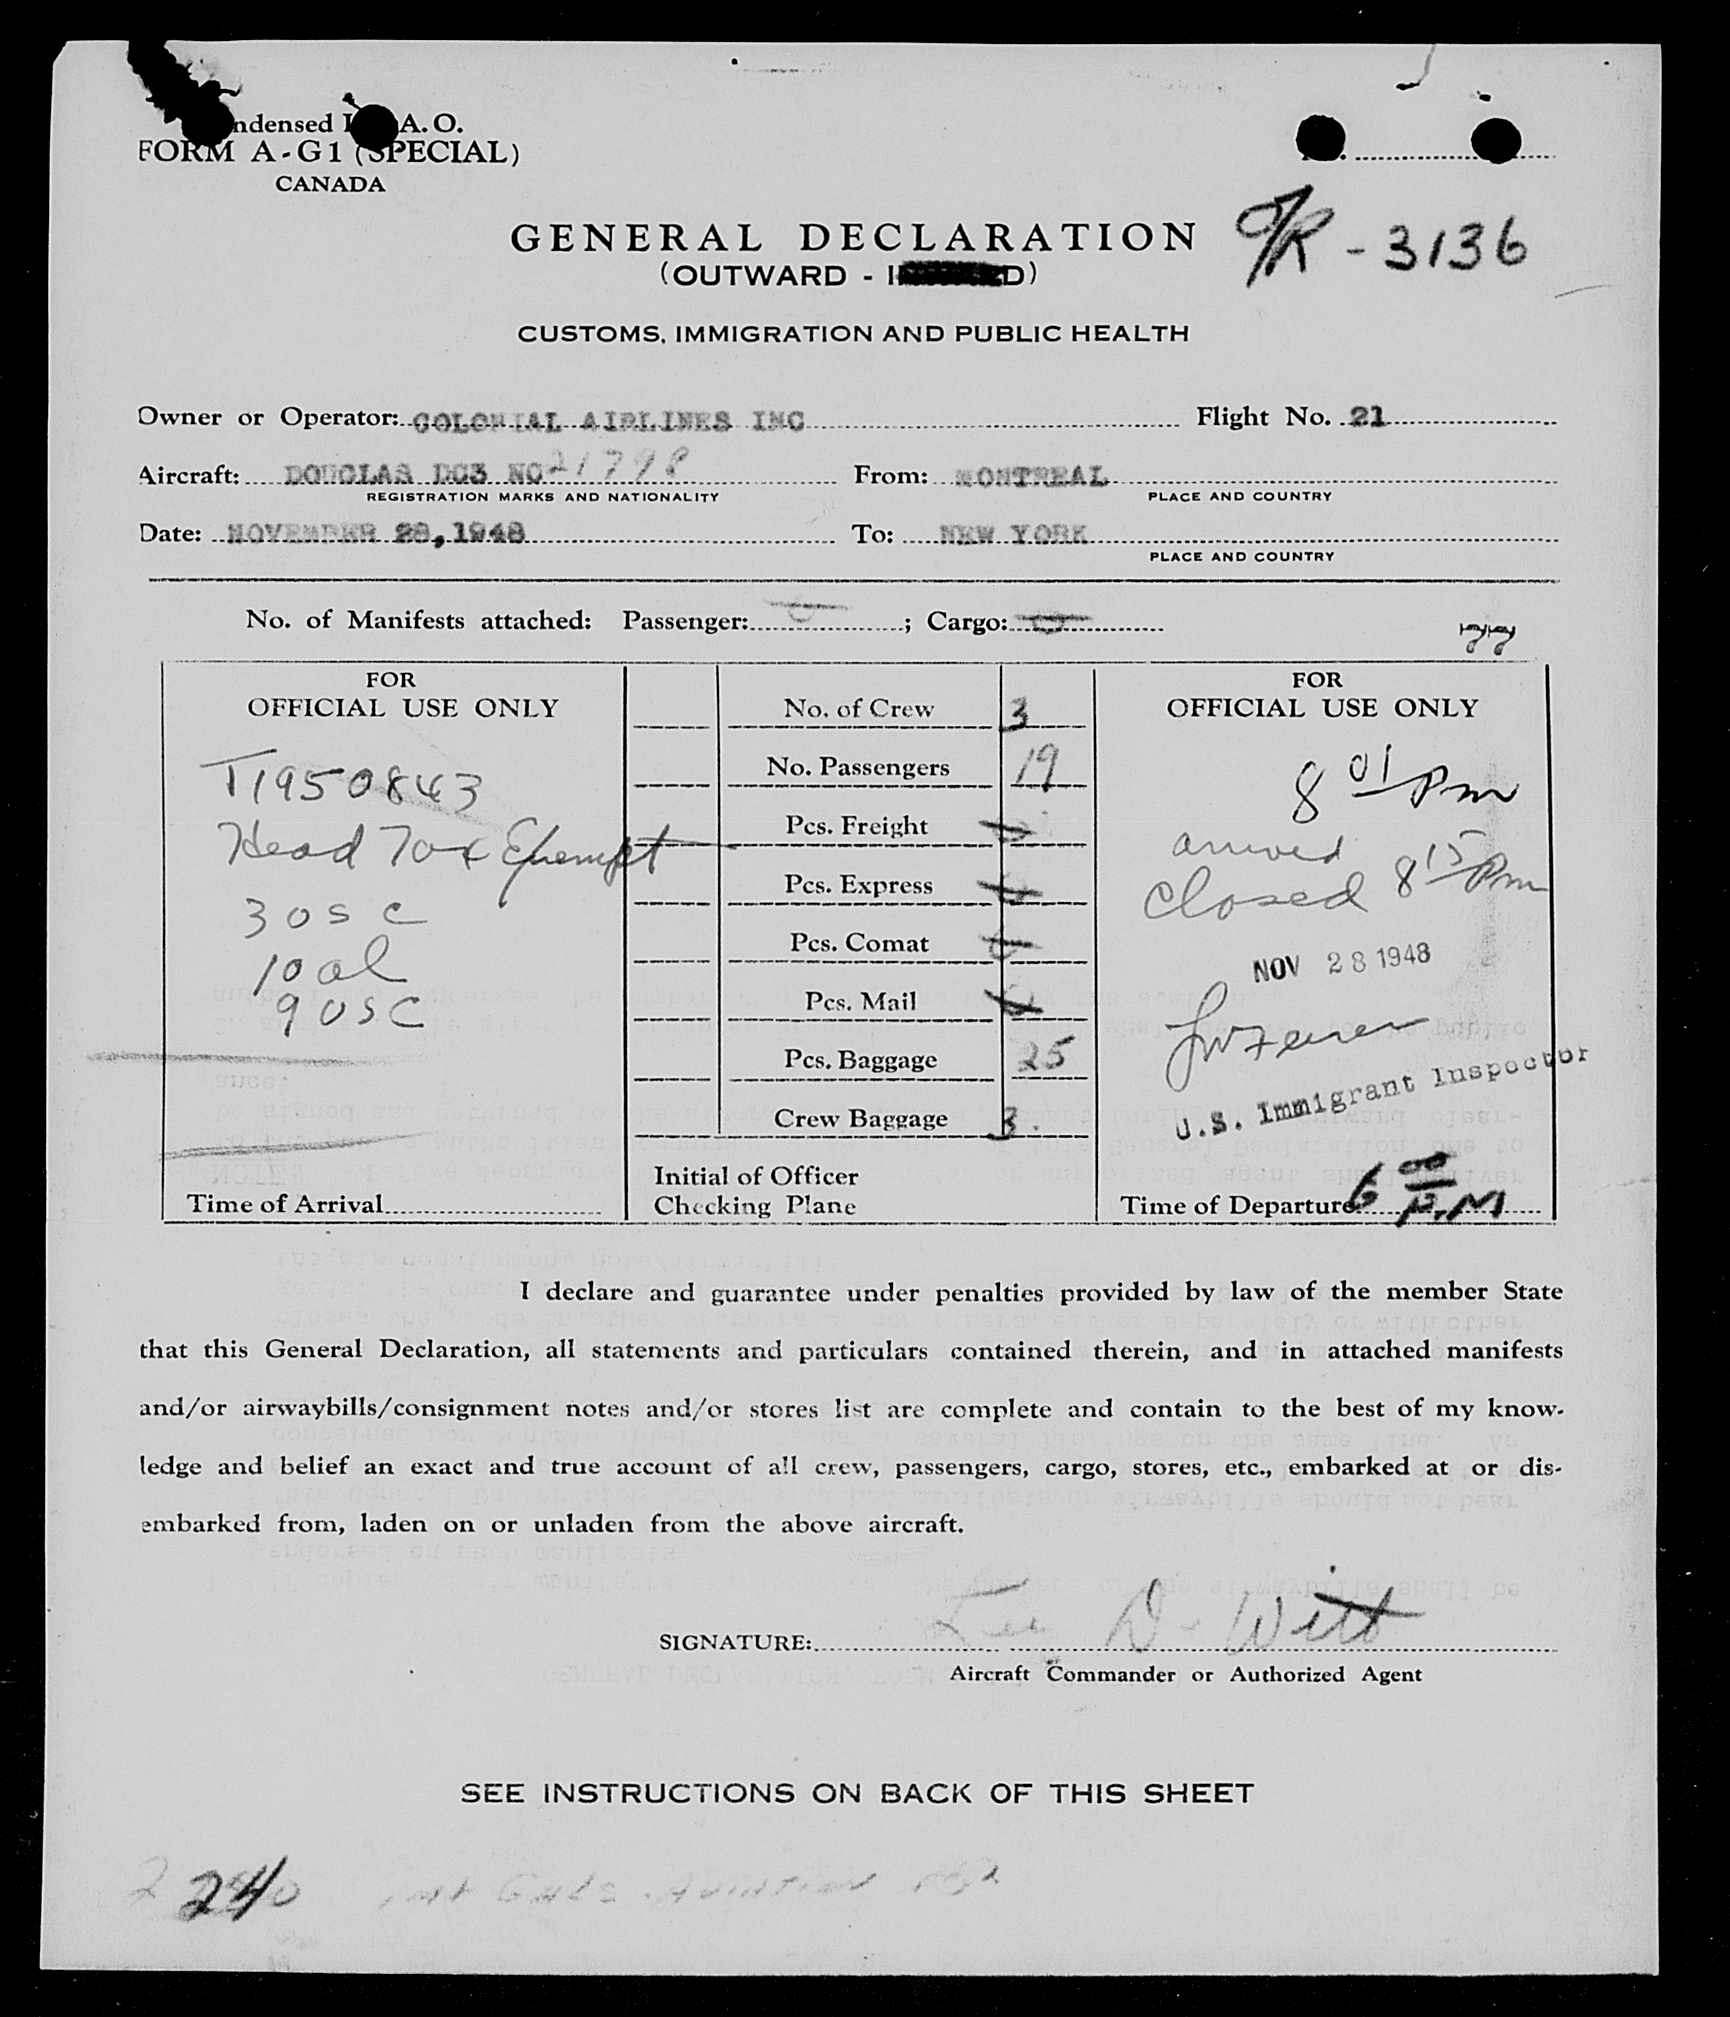 ndensed I A. O.
FORM A-G1 (SPECIAL)
CANADA
GENERAL DECLARATION
(OUTWARD - I D)
O/R - 3136
CUSTOMS, IMMIGRATION AND PUBLIC HEALTH
Owner or Operator: COLONIAL AIRLINES INC Flight No. 21
Aircraft: DOUGLAS DC3 NC 21798 From: MONTREAL
REGISTRATION MARKS AND NATIONALITY PLACE AND COUNTRY
Date: NOVEMBER 28, 1948 To: NEW YORK
PLACE AND COUNTRY
No. of Manifests attached: Passenger: 0 ; Cargo: 0
FOR
OFFICIAL USE ONLY
T1950843
Head Tax Exempt
3 USC
10 al
9 USC
Time of Arrival
No. of Crew 3
No. Passengers 19
Pcs. Freight 0
Pcs. Express 0
Pcs. Comat 0
Pcs. Mail 0
Pcs. Baggage 25
Crew Baggage 3
Initial of Officer
Checking Plane
FOR
OFFICIAL USE ONLY
8 01 Pm
arrived
closed 8 15 Pm
NOV 28 1948
U.S. Immigrant Inspector
Time of Departure 6 00 P.M
I declare and guarantee under penalties provided by law of the member State
that this General Declaration, all statements and particulars contained therein, and in attached manifests
and/or airwaybills/consignment notes and/or stores list are complete and contain to the best of my know-
ledge and belief an exact and true account of all crew, passengers, cargo, stores, etc., embarked at or dis-
embarked from, laden on or unladen from the above aircraft.
SIGNATURE: Lee De Witt
Aircraft Commander or Authorized Agent
SEE INSTRUCTIONS ON BACK OF THIS SHEET
240